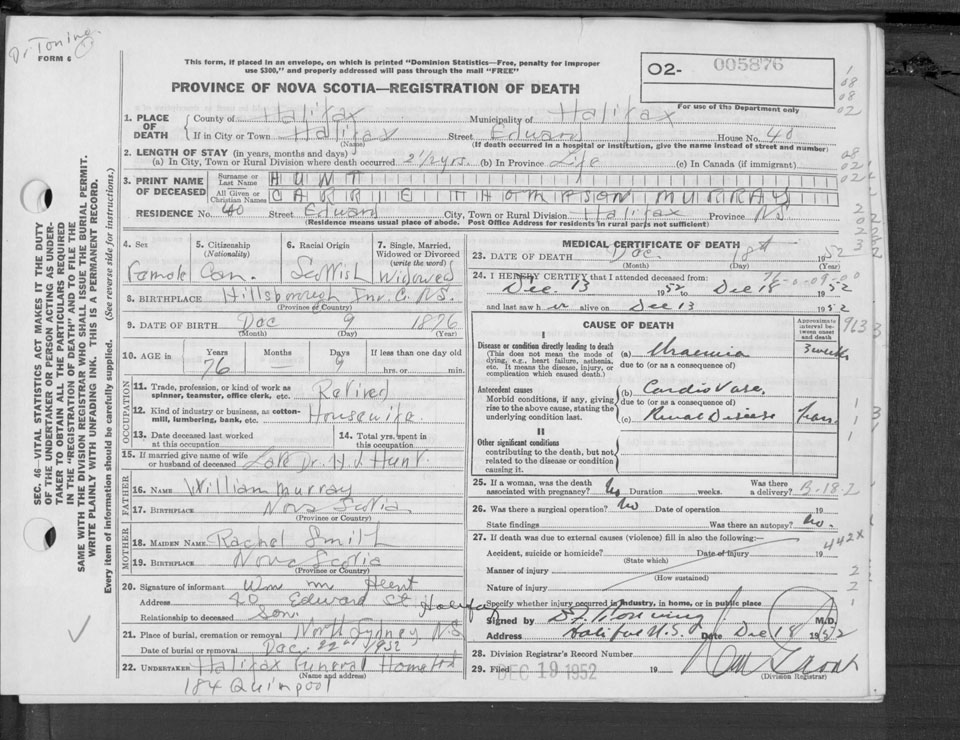 Dr Toning
FORM 6
This form, if placed in an envelope, on which is printed "Dominion Statistics—Free, penalty for improper
use $300," and properly addressed will pass through the mail "FREE"
PROVINCE OF NOVA SCOTIA—REGISTRATION OF DEATH
02- 005876
For use of the Department only
1. PLACE OF DEATH
County of Halifax Municipality of Halifax
If in City or Town Halifax Street Edward House No. 40
(Name) (If death occurred in a hospital or institution, give the name instead of street and number)
2. LENGTH OF STAY (in years, months and days)
(a) In City, Town or Rural Division where death occurred 2 1/2 yrs. (b) In Province Life (c) In Canada (if immigrant)
3. PRINT NAME OF DECEASED
Surname or Last Name HUNT
All Given or Christian Names CARRIE THOMPSON MURRAY
RESIDENCE No. 40 Street Edward City, Town or Rural Division Halifax Province N.S.
(Residence means usual place of abode. Post Office Address for residents in rural parts not sufficient)
4. Sex Female
5. Citizenship (Nationality) Can.
6. Racial Origin Scottish
7. Single, Married, Widowed or Divorced (write the word) Widowed
8. BIRTHPLACE Hillsborough Inv. C. N.S.
(Province or Country)
9. DATE OF BIRTH Dec 9 1876
(Month) (Day) (Year)
10. AGE in Years 76 Months — Days 9 If less than one day old
hrs. or min.
OCCUPATION
11. Trade, profession, or kind of work as spinner, teamster, office clerk, etc. Retired
12. Kind of industry or business, as cotton-mill, lumbering, bank, etc. Housewife.
13. Date deceased last worked at this occupation
14. Total yrs. spent in this occupation
15. If married give name of wife or husband of deceased Late Dr. H. J. Hunt.
FATHER
16. NAME William Murray
17. BIRTHPLACE Nova Scotia
(Province or Country)
MOTHER
18. MAIDEN NAME Rachel Smith
19. BIRTHPLACE Nova Scotia
(Province or Country)
20. Signature of informant Wm m Hunt
Address 40 Edward St Halifax
Relationship to deceased Son
21. Place of burial, cremation or removal North Sydney N.S.
Date of burial or removal Dec. 22nd 1952
22. UNDERTAKER Halifax Funeral Home Ltd
(Name and address)
184 Quinpool
MEDICAL CERTIFICATE OF DEATH
23. DATE OF DEATH Dec. 18th 1952
(Month) (Day) (Year)
24. I HEREBY CERTIFY that I attended deceased from: 76-0-09-00
Dec. 13 1952 to Dec 18 1952
and last saw h er alive on Dec 13 1952
CAUSE OF DEATH
Approximate interval between onset and death
I
Disease or condition directly leading to death
(This does not mean the mode of dying, e.g., heart failure, asthenia, etc. It means the disease, injury, or complication which caused death.)
(a) Uraemia 3 weeks
due to (or as a consequence of)
Antecedent causes
Morbid conditions, if any, giving rise to the above cause, stating the underlying condition last.
(b) Cardio Vasc.
due to (or as a consequence of)
(c) Renal Disease Years.
II
Other significant conditions
contributing to the death, but not related to the disease or condition causing it.
25. If a woman, was the death associated with pregnancy? No Duration weeks. Was there a delivery?
26. Was there a surgical operation? No Date of operation 19
State findings Was there an autopsy? No.
27. If death was due to external causes (violence) fill in also the following: 442X
Accident, suicide or homicide? Date of injury 19
(State which)
Manner of injury
(How sustained)
Nature of injury
Specify whether injury occurred in industry, in home, or in public place
Signed by M.D.
Address Halifax N.S. Date Dec 18 1952
28. Division Registrar's Record Number
29. Filed DEC 19 1952 19
(Division Registrar)
SEC. 46—VITAL STATISTICS ACT MAKES IT THE DUTY
OF THE UNDERTAKER OR PERSON ACTING AS UNDER-
TAKER TO OBTAIN ALL THE PARTICULARS REQUIRED
IN THE "REGISTRATION OF DEATH" AND TO FILE THE
SAME WITH THE DIVISION REGISTRAR WHO SHALL ISSUE THE BURIAL PERMIT.
WRITE PLAINLY WITH UNFADING INK. THIS IS A PERMANENT RECORD.
Every item of information should be carefully supplied. (See reverse side for instructions.)